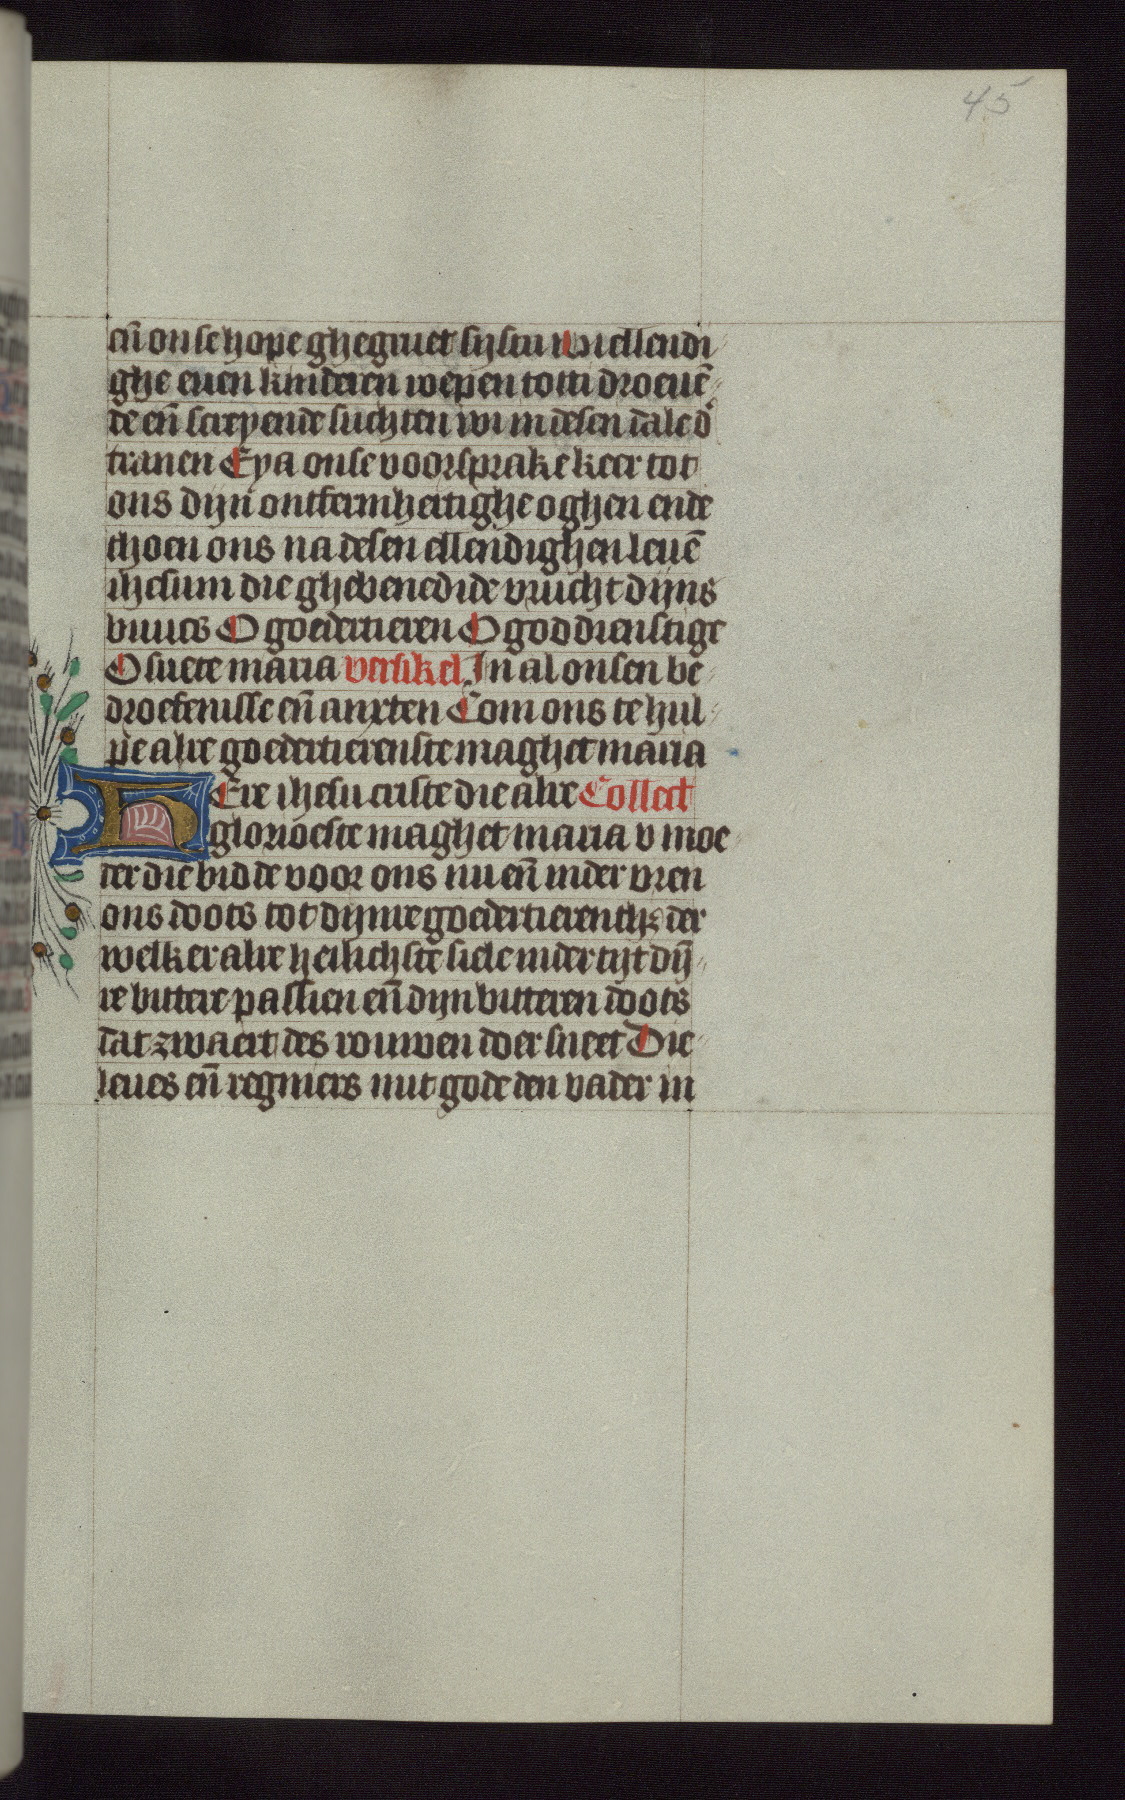 45
eñ onse hope ghegruet sijstu wi ellendi
ghe euen kinderen wepen tot di droeuē
de eñ screyende suchten wi in desen dale d'
tranen Eya onse voorsprake keer tot
ons dijn ontfermhertighe oghen ende
thoen ons na desen ellendighen leuē
ihesum die ghebenedide vrucht dijns
buucs O goedertieren O goddienstige
O suete maria versikel In al onsen be
droefenisse eñ anxten Com ons te hul
pe alre goedertierenste maghet maria
HEre ihesu criste die alre Collect
glorioeste maghet maria v moe
der die bidde voor ons nu eñ inder vren
ons doots tot dijnre goedertierenthz der
welker alre heilichste siele inder tijt dij
re bittere passien eñ dijn bitteren doots
dat zwaert des rouwen doer sneet Die
leues eñ regniers mit gode den vader in